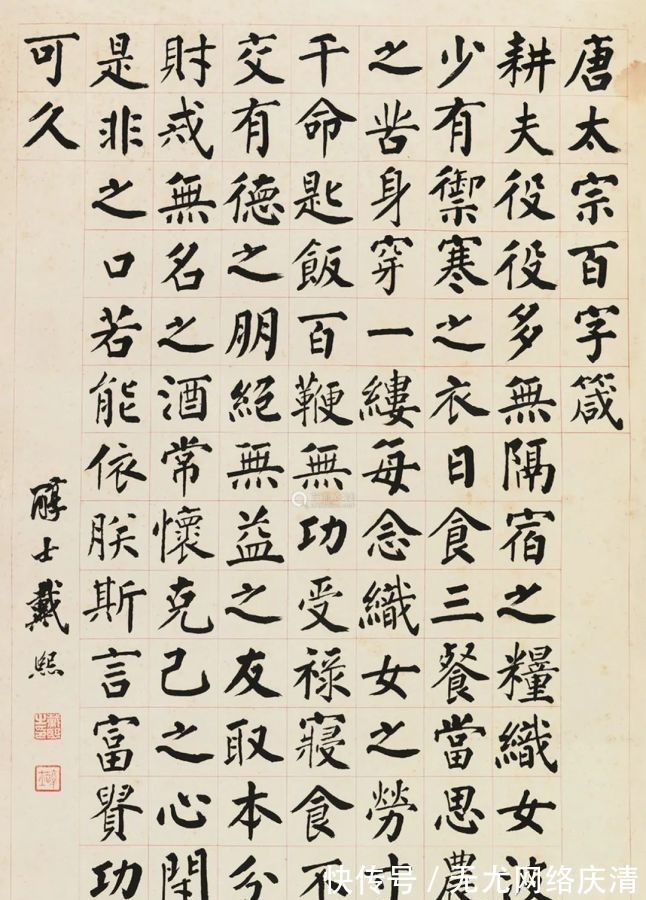 唐太宗百字箴
耕夫役役多無隔宿之糧織女波
少有禦寒之衣日食三餐當思農
之苦身穿一縷每念織女之勞寸
干命匙飯百鞭無功受祿寢食不
交有德之朋絕無益之友取本分
財戒無名之酒常懷克己之心閉
是非之口若能依朕斯言富貴功
可久
醇士戴熙
快传号／无尤网络庆清